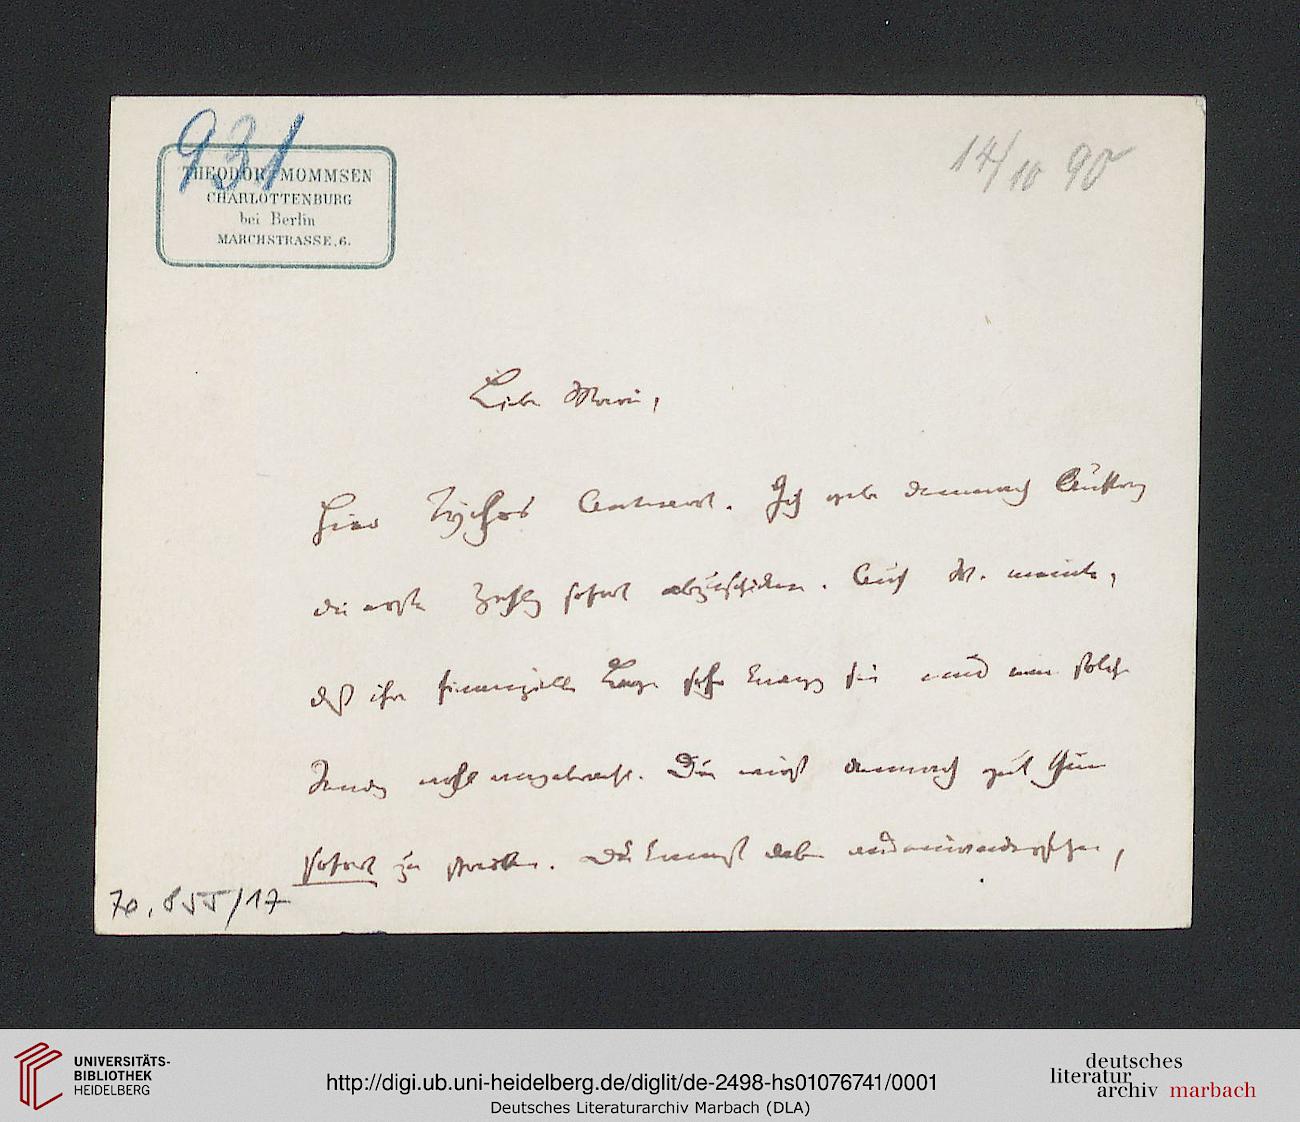 931
14/10 90
THEODOR MOMMSEN
CHARLOTTENBURG
bei Berlin
MARCHSTRASSE, 6.
Liebe Marie,
Hier Tychos Antwort. Ich gebe demnach Auftrag
die erste sofort abzuschicken. Auch M. meinte,
daß ihre finanzielle Lage sehr knapp sei und eine solche
wohl angebracht. Du wirst demnach gut thun
sofort zu schreiben. Du kannst dabei auseinandersetzen,
70.855/17
UNIVERSITÄTS-
BIBLIOTHEK
HEIDELBERG
http://digi.ub.uni-heidelberg.de/diglit/de-2498-hs01076741/0001
Deutsches Literaturarchiv Marbach (DLA)
deutsches
literatur
archiv marbach